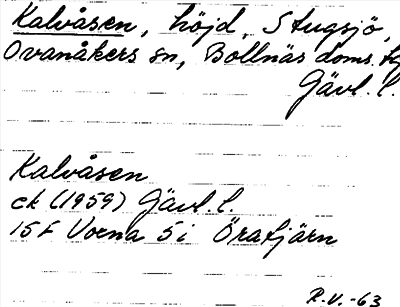 Kalvåsen, höjd, Stugsjö,
Ovanåkers sn, Bollnäs doms.
Gävl. l.
Kalvåsen
ek (1959) Gävl. l.
15F Voxna 5i Öratjärn
R.V.-63